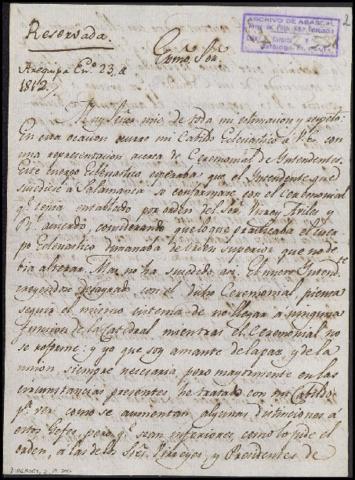 Reservada.
Exmo. Sor.
ARCHIVO DE ABASCAL
Arequipa En.º 23, de
1812.
Muy Señor mio de toda mi estimacion y respeto:
En esta ocasion ocurre mi Cabildo Eclesiastico á V.E. con
una representacion acerca de Ceremonial de Intendentes.
Este Cuerpo Eclesiastico esperaba que el Intendente que
sucediese á Salamanca se conformase con el Ceremonial
q.e tenia entablado por orden del Sor. Virrey Aviles y
R.l acuerdo, considerando que lo que practicaba el cuer
po Eclesiastico dimanaba de orden superior que no de
bia alterar. Mas no ha sucedido asi. El nuevo Intend.te
creyendose desayrado con el dicho Ceremonial piensa
seguir el mismo sistema de no llegar a ninguna
funcion de la Catedral mientras el Ceremonial no
se reforme: y yo que soy amante de la paz, y de la
union siempre necesaria pero mayormente en las
circunstancias presentes he tratado con mi Cabildo
p.a ver como se aumentan algunas distinciones á
estos Gefes, pero q.e sean inferiores, como lo pide el
orden, a las de los Sres. Virreyes, y Presidentes de